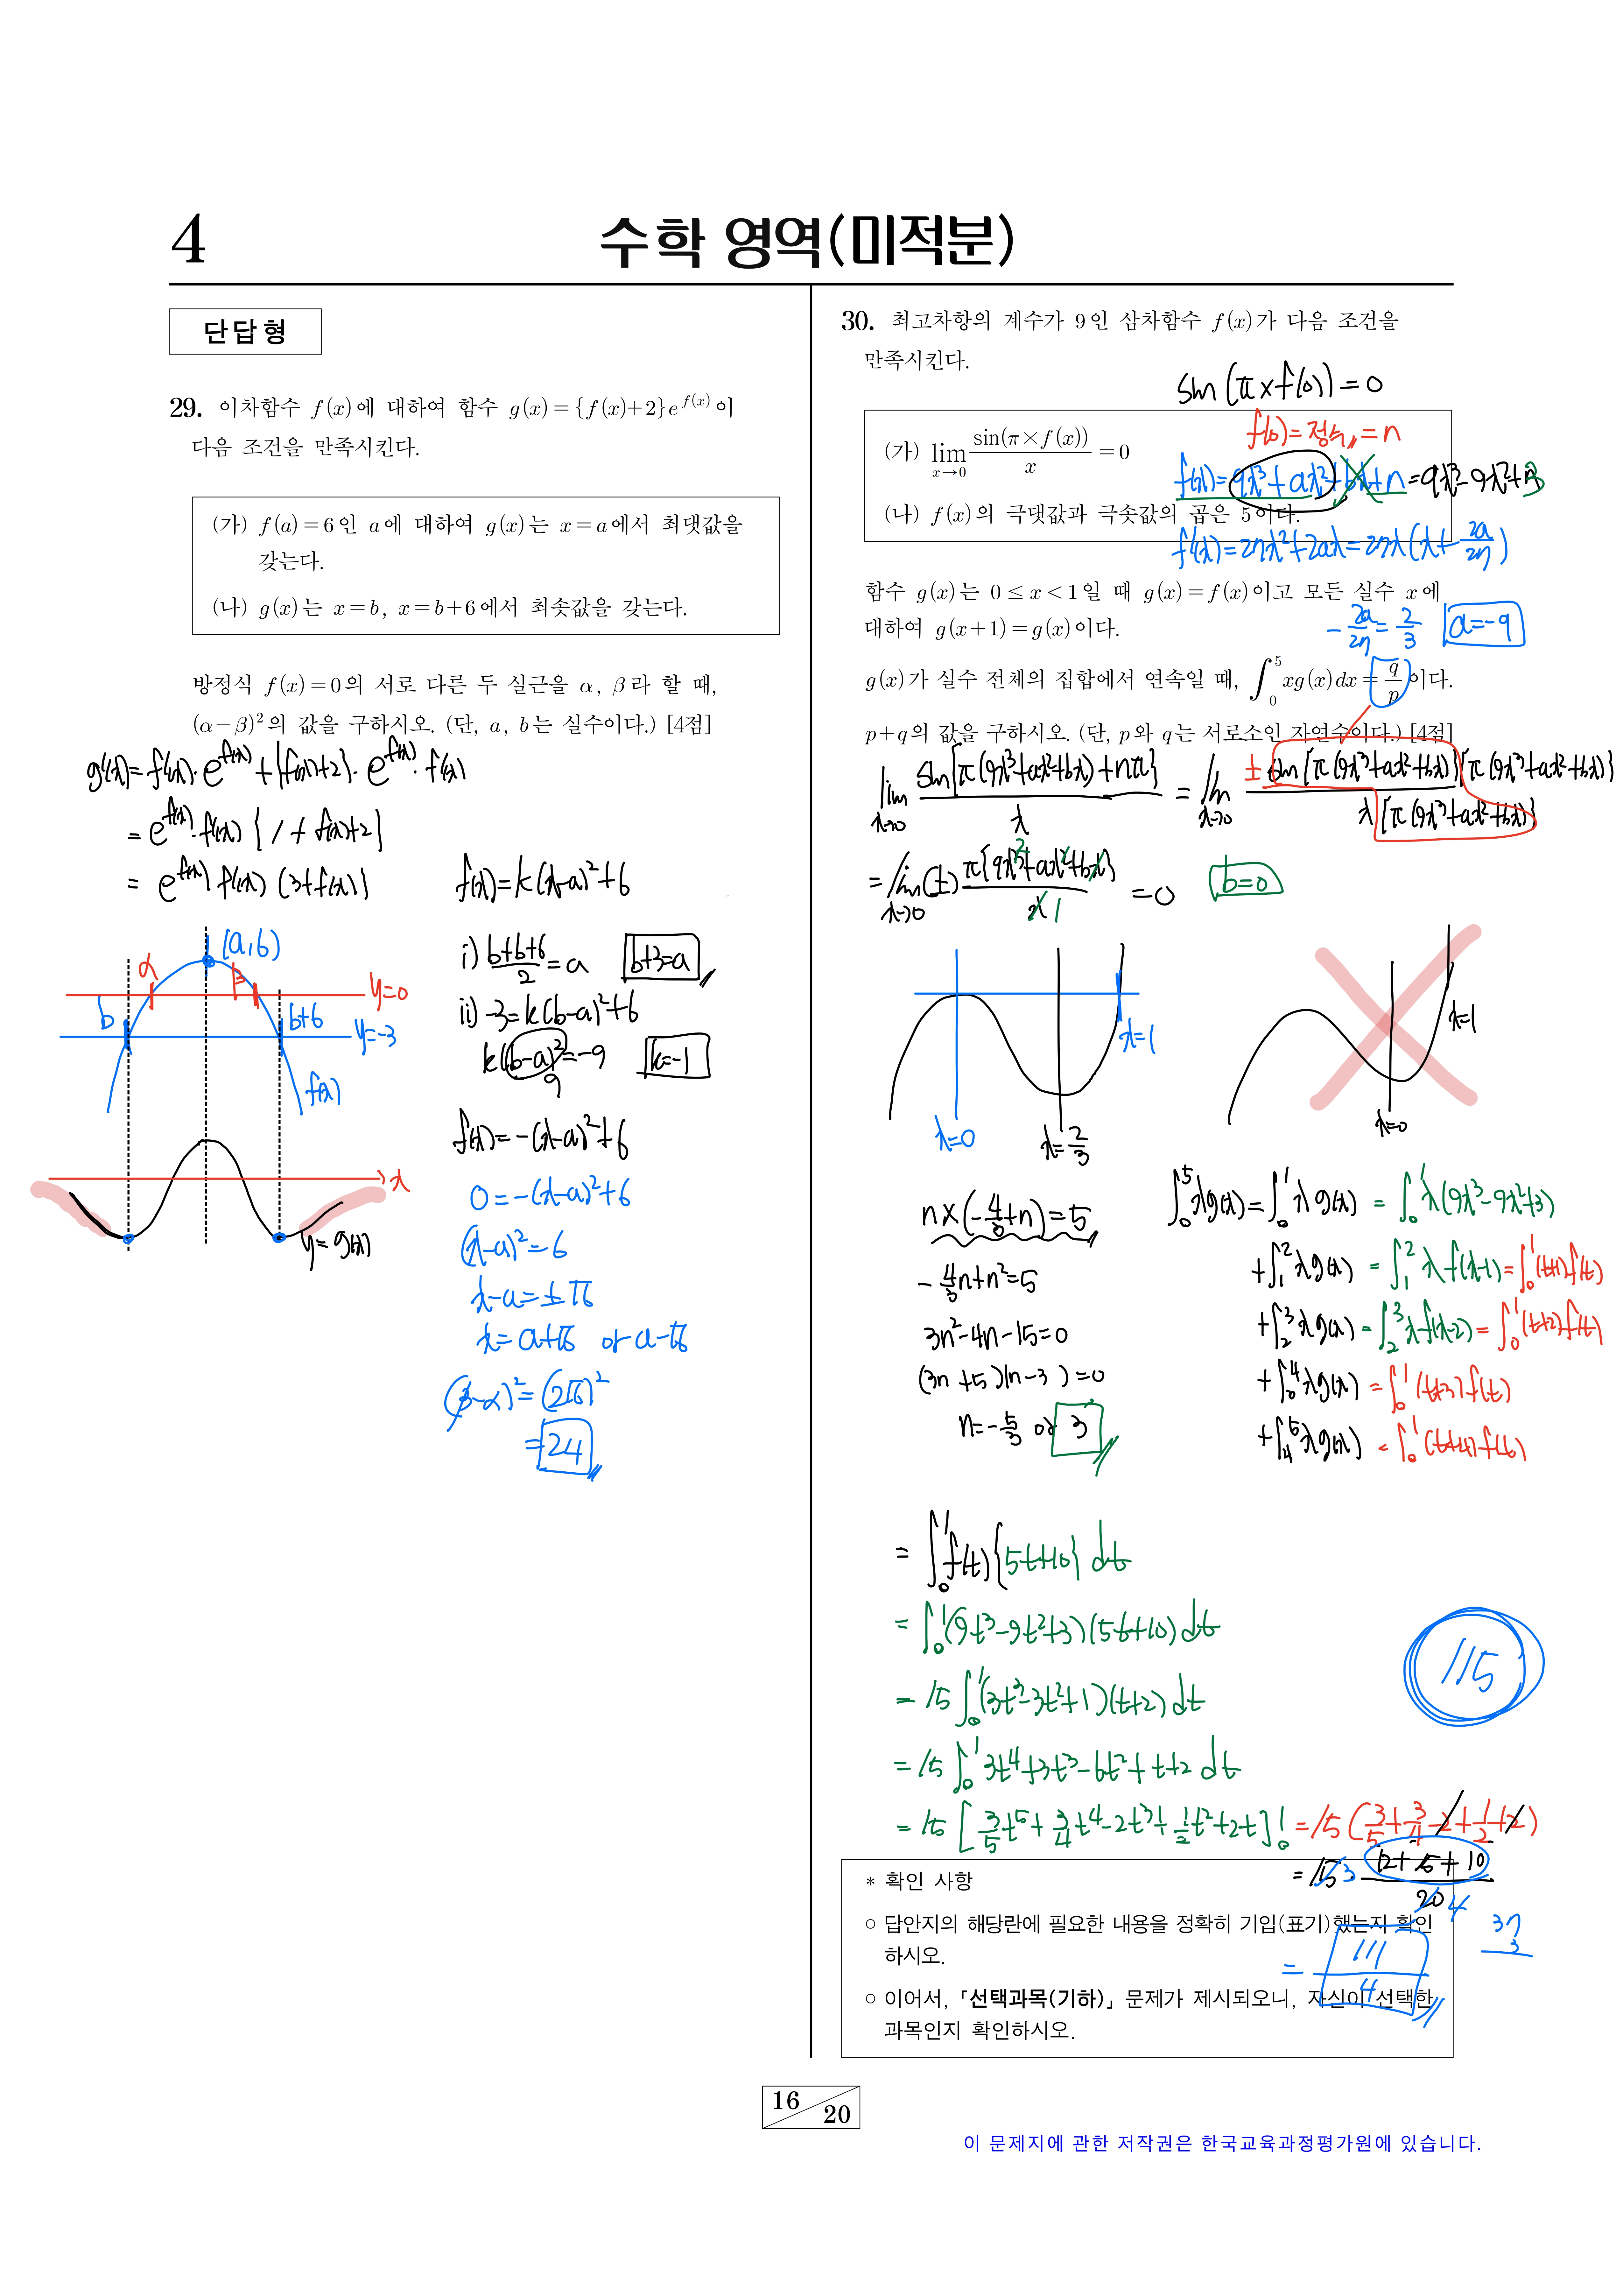 4
수학 영역(미적분)
단답형
29. 이차함수 f(x)에 대하여 함수 g(x)={f(x)+2}e^{f(x)}이
다음 조건을 만족시킨다.
(가) f(a)=6인 a에 대하여 g(x)는 x=a에서 최댓값을
갖는다.
(나) g(x)는 x=b, x=b+6에서 최솟값을 갖는다.
방정식 f(x)=0의 서로 다른 두 실근을 α, β라 할 때,
(α-β)²의 값을 구하시오. (단, a, b는 실수이다.) [4점]
g'(x)=f'(x)·e^{f(x)}+{f(x)+2}·e^{f(x)}·f'(x)
=e^{f(x)}·f'(x){1+f(x)+2}
=e^{f(x)}f'(x)(3+f(x)}
f(x)=k(x-a)²+6
(a,6)
α
β
y=0
b
b+6
y=-3
f(x)
x
y=g(x)
i) \frac{b+b+6}{2}=a
b+3=a
ii) -3=k(b-a)²+6
k(b-a)²=-9
9
k=-1
f(x)=-(x-a)²+6
0=-(x-a)²+6
(x-a)²=6
x-a=±√6
x=a+√6 or a-√6
(β-α)²=(2√6)²
=24
30. 최고차항의 계수가 9인 삼차함수 f(x)가 다음 조건을
만족시킨다.
sin(π×f(0))=0
f(0)=정수=n
(가) \lim_{x→0}\frac{sin(π×f(x))}{x}=0
f(x)=9x³+ax²+bx+n=9x³-9x²+3
(나) f(x)의 극댓값과 극솟값의 곱은 5이다.
f'(x)=27x²+2ax=27x(x+\frac{2a}{27})
함수 g(x)는 0≤x<1일 때 g(x)=f(x)이고 모든 실수 x에
대하여 g(x+1)=g(x)이다.
-\frac{2a}{27}=\frac{2}{3}
a=-9
g(x)가 실수 전체의 집합에서 연속일 때, ∫_0^5 xg(x)dx=\frac{q}{p}이다.
p+q의 값을 구하시오. (단, p와 q는 서로소인 자연수이다.) [4점]
\lim_{x→0}\frac{sin{π(9x³+ax²+bx)+nπ}}{x}=\lim_{x→0}\frac{±sin{π(9x³+ax²+bx)}{π(9x³+ax²+bx)}}{x{π(9x³+ax²+bx)}}
=\lim_{x→0}(±)\frac{π{9x³+ax²+bx}}{x}=0
b=0
x=0
x=\frac{2}{3}
x=1
x=0
x=1
n×(-\frac{4}{3}+n)=5
-\frac{4}{3}n+n²=5
3n²-4n-15=0
(3n+5)(n-3)=0
n=-\frac{5}{3} or 3
∫_0^5 xg(x)=∫_0^1 xg(x)=∫_0^1 x(9x³-9x²+3)
+∫_1^2 xg(x)=∫_1^2 xf(x-1)=∫_0^1(t+1)f(t)
+∫_2^3 xg(x)=∫_2^3 xf(x-2)=∫_0^1(t+2)f(t)
+∫_3^4 xg(x)=∫_0^1(t+3)f(t)
+∫_4^5 xg(x)=∫_0^1(t+4)f(t)
=∫_0^1 f(t){5t+10}dt
=∫_0^1(9t³-9t²+3)(5t+10)dt
=15∫_0^1(3t³-3t²+1)(t+2)dt
=15∫_0^1 3t⁴+3t³-6t²+t+2 dt
=15[\frac{3}{5}t⁵+\frac{3}{4}t⁴-2t³+\frac{1}{2}t²+2t]_0^1=15(\frac{3}{5}+\frac{3}{4}-2+\frac{1}{2}+2)
=15·\frac{12+15+10}{20}
3
4
37
3
=\frac{111}{4}
115
* 확인 사항
○ 답안지의 해당란에 필요한 내용을 정확히 기입(표기)했는지 확인
하시오.
○ 이어서, 「선택과목(기하)」 문제가 제시되오니, 자신이 선택한
과목인지 확인하시오.
16
20
이 문제지에 관한 저작권은 한국교육과정평가원에 있습니다.